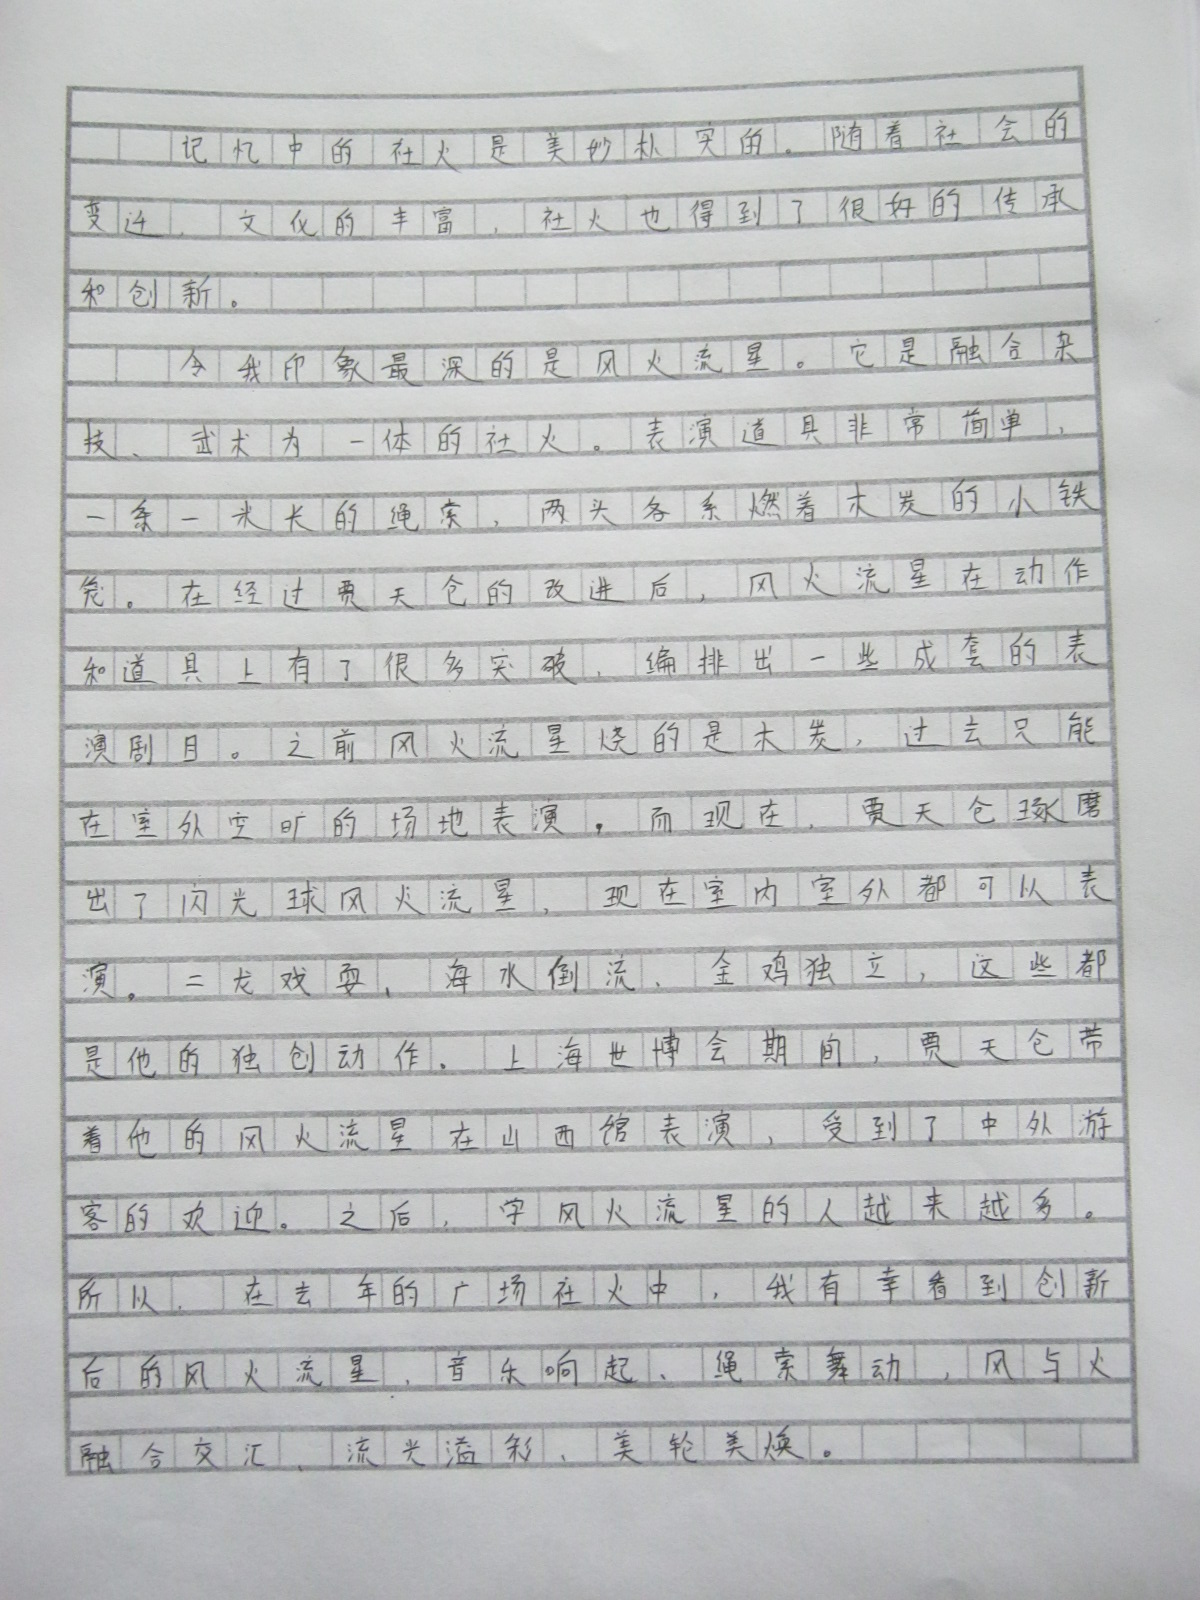 记忆中的社火是美妙朴实的。随着社会的
变迁，文化的丰富，社火也得到了很好的传承
和创新。
令我印象最深的是风火流星。它是融合杂
技、武术为一体的社火。表演道具非常简单，
一条一米长的绳索，两头各系燃着木炭的小铁
笼。在经过贾天仓的改进后，风火流星在动作
和道具上有了很多突破，编排出一些成套的表
演剧目。之前风火流星烧的是木炭，过去只能
在室外空旷的场地表演。而现在，贾天仓琢磨
出了闪光球风火流星，现在室内室外都可以表
演。二龙戏耍、海水倒流、金鸡独立，这些都
是他的独创动作。上海世博会期间，贾天仓带
着他的风火流星在山西馆表演，受到了中外游
客的欢迎。之后，学风火流星的人越来越多。
所以，在去年的广场社火中，我有幸看到创新
后的风火流星，音乐响起、绳索舞动，风与火
融合交汇、流光溢彩、美轮美焕。